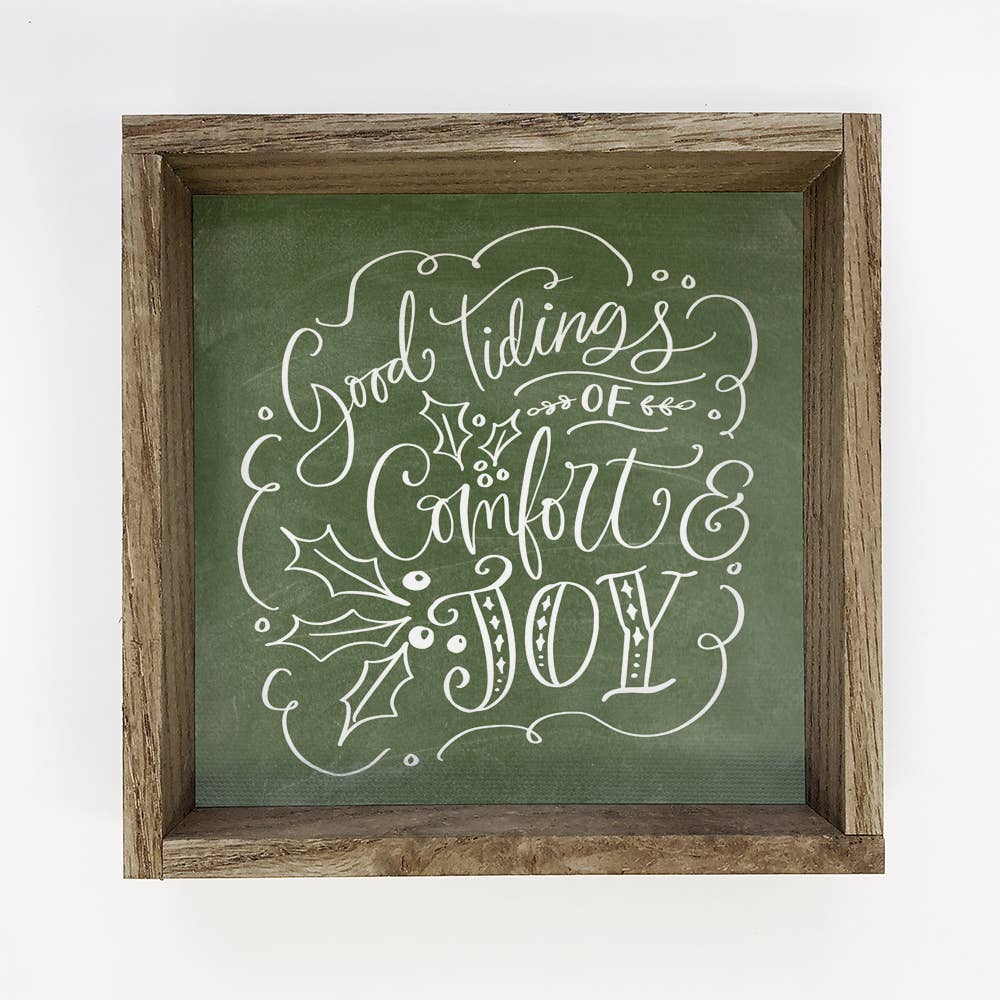 Good Tidings
OF
Comfort &
JOY